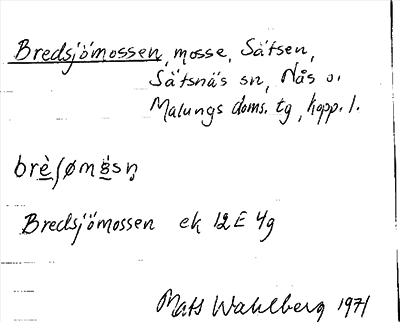 Bredsjömossen, mosse, Sätsen,
Särsnäs sn, Nås o.
Malungs doms. tg, Kopp. l.
brèʃømsn̥
Bredsjömossen ek 12E 4g
Mats Wahlberg 1971